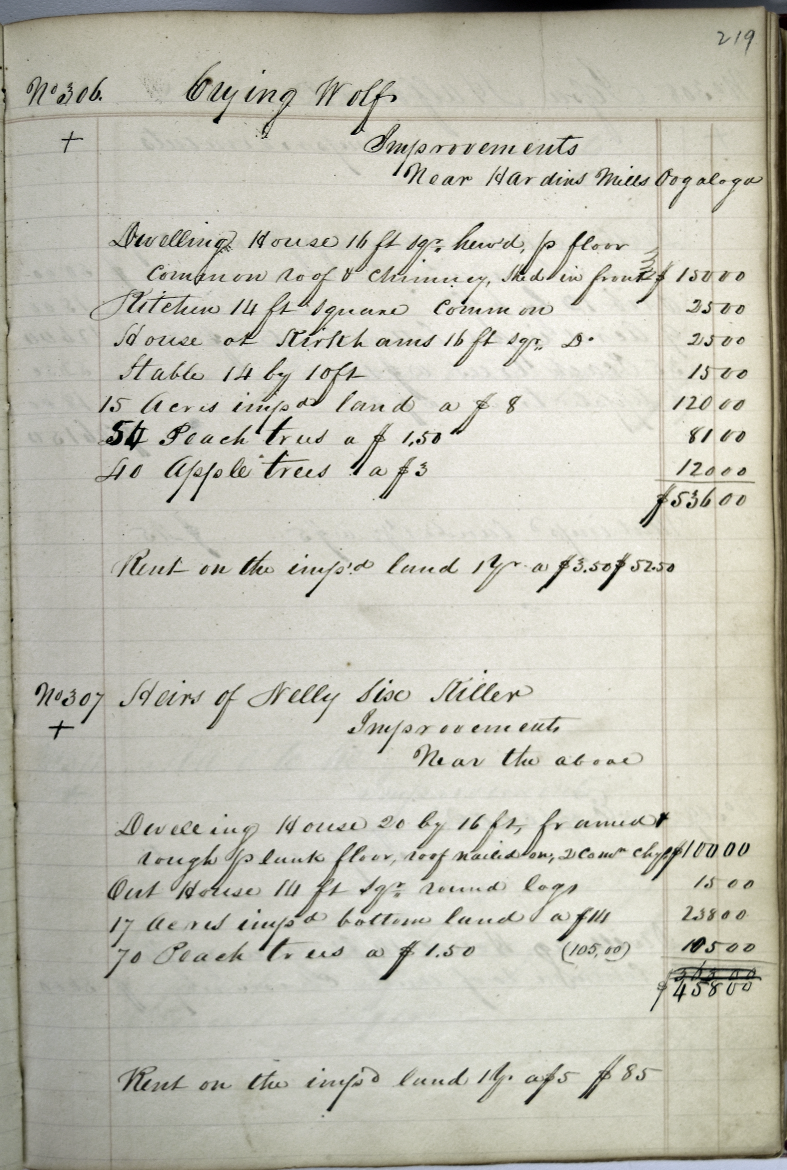 219
No 306. Crying Wolf
+ Improvements
Near Hardins Mills Oogaloga
Dwelling House 16 ft sqr. hew'd, p floor
common roof & chimney, shed in front $ 150 00
Kitchen 14 ft square common 25 00
House at Kirkhams 16 ft sqr. Do 25 00
Stable 14 by 10ft 15 00
15 Acres imp'd land a $ 8 120 00
54 Peach trees a $ 1,50 81 00
40 Apple trees a $3 120 00
$536 00
Rent on the imp'd land 1 Yr a $3.50 $52.50
No 307 Heirs of Nelly Six Killer
+ Improvements
Near the above
Dwelling House 20 by 16 ft, framed &
rough plank floor, roof nailed on, 2 com chys $100 00
Out House 14 ft sqr round logs 15 00
17 Acres imp'd bottom land a $14 238 00
70 Peach trees a $ 1.50 (105,00) 105 00
$458 00
Rent on the imp'd land 1 Yr. a $5 $85